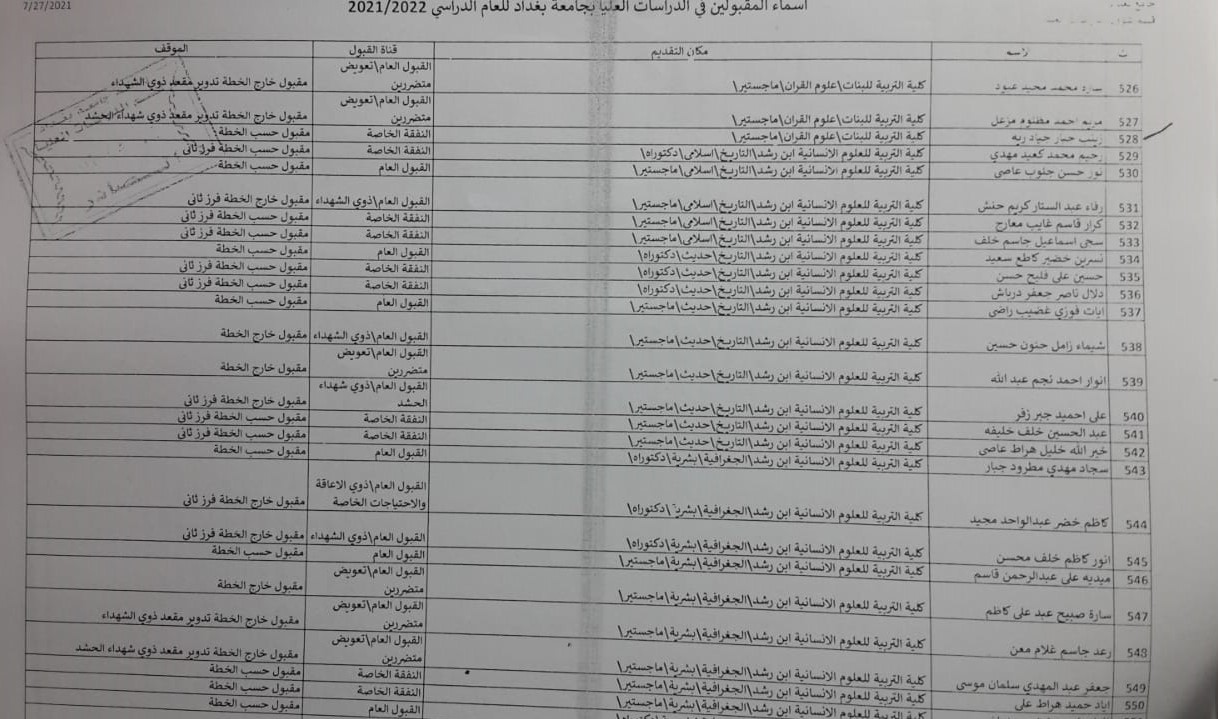 7/27/2021
اسماء المقبولين في الدراسات العليا بجامعة بغداد للعام الدراسي 2021/2022
ت الاسم مكان التقديم قناة القبول الموقف
526 سارة محمد مجيد عبود كلية التربية للبنات\علوم القران\ماجستير\ القبول العام\تعويض متضررين مقبول خارج الخطة تدوير مقعد ذوي الشهداء
527 مريم احمد مظلوم مزعل كلية التربية للبنات\علوم القران\ماجستير\ القبول العام\تعويض متضررين مقبول خارج الخطة تدوير مقعد ذوي شهداء الحشد
528 زينب جبار جياد كلية التربية للبنات\علوم القران\ماجستير\ النفقة الخاصة مقبول حسب الخطة
529 رحيم محمد كعيد مهدي كلية التربية للعلوم الانسانية ابن رشد\التاريخ\اسلامي\دكتوراه\ النفقة الخاصة مقبول حسب الخطة فرز ثاني
530 نور حسن جلوب عاصي كلية التربية للعلوم الانسانية ابن رشد\التاريخ\اسلامي\ماجستير\ القبول العام مقبول حسب الخطة
531 رفاء عبد الستار كريم حنش كلية التربية للعلوم الانسانية ابن رشد\التاريخ\اسلامي\ماجستير\ القبول العام\ذوي الشهداء مقبول خارج الخطة فرز ثاني
532 كرار قاسم غايب معارج كلية التربية للعلوم الانسانية ابن رشد\التاريخ\اسلامي\ماجستير\ النفقة الخاصة مقبول حسب الخطة فرز ثاني
533 سجى اسماعيل جاسم خلف كلية التربية للعلوم الانسانية ابن رشد\التاريخ\اسلامي\ماجستير\ النفقة الخاصة مقبول حسب الخطة فرز ثاني
534 نسرين خضير كاطع سعيد كلية التربية للعلوم الانسانية ابن رشد\التاريخ\حديث\دكتوراه\ القبول العام مقبول حسب الخطة
535 حسين علي فليح حسن كلية التربية للعلوم الانسانية ابن رشد\التاريخ\حديث\دكتوراه\ النفقة الخاصة مقبول حسب الخطة فرز ثاني
536 دلال ناصر جعفر درباش كلية التربية للعلوم الانسانية ابن رشد\التاريخ\حديث\دكتوراه\ النفقة الخاصة مقبول حسب الخطة فرز ثاني
537 ايات فوزي غضيب راضي كلية التربية للعلوم الانسانية ابن رشد\التاريخ\حديث\ماجستير\ القبول العام مقبول حسب الخطة
538 شيماء زامل حنون حسين كلية التربية للعلوم الانسانية ابن رشد\التاريخ\حديث\ماجستير\ القبول العام\ذوي الشهداء مقبول خارج الخطة
539 انوار احمد نجم عبد الله كلية التربية للعلوم الانسانية ابن رشد\التاريخ\حديث\ماجستير\ القبول العام\تعويض متضررين مقبول خارج الخطة
540 علي احميد جبر زفر كلية التربية للعلوم الانسانية ابن رشد\التاريخ\حديث\ماجستير\ القبول العام\ذوي شهداء الحشد مقبول خارج الخطة فرز ثاني
541 عبد الحسين خلف خليفه كلية التربية للعلوم الانسانية ابن رشد\التاريخ\حديث\ماجستير\ النفقة الخاصة مقبول حسب الخطة فرز ثاني
542 خير الله خليل هراط عاصي كلية التربية للعلوم الانسانية ابن رشد\التاريخ\حديث\ماجستير\ النفقة الخاصة مقبول حسب الخطة فرز ثاني
543 سجاد مهدي مطرود جبار كلية التربية للعلوم الانسانية ابن رشد\الجغرافية\بشرية\دكتوراه\ القبول العام مقبول حسب الخطة
544 كاظم خضر عبدالواحد مجيد كلية التربية للعلوم الانسانية ابن رشد\الجغرافية\بشرية\دكتوراه\ القبول العام\ذوي الاعاقة والاحتياجات الخاصة مقبول خارج الخطة فرز ثاني
545 انور كاظم خلف محسن كلية التربية للعلوم الانسانية ابن رشد\الجغرافية\بشرية\دكتوراه\ القبول العام\ذوي الشهداء مقبول خارج الخطة فرز ثاني
546 ميديه علي عبدالرحمن قاسم كلية التربية للعلوم الانسانية ابن رشد\الجغرافية\بشرية\ماجستير\ القبول العام مقبول حسب الخطة
547 سارة صبيح عبد علي كاظم كلية التربية للعلوم الانسانية ابن رشد\الجغرافية\بشرية\ماجستير\ القبول العام\تعويض متضررين مقبول خارج الخطة
548 رعد جاسم غلام معن كلية التربية للعلوم الانسانية ابن رشد\الجغرافية\بشرية\ماجستير\ القبول العام\تعويض متضررين مقبول خارج الخطة تدوير مقعد ذوي الشهداء
549 جعفر عبد المهدي سلمان موسى كلية التربية للعلوم الانسانية ابن رشد\الجغرافية\بشرية\ماجستير\ القبول العام\تعويض متضررين مقبول خارج الخطة تدوير مقعد ذوي شهداء الحشد
550 اياد حميد هراط علي كلية التربية للعلوم الانسانية ابن رشد\الجغرافية\بشرية\ماجستير\ النفقة الخاصة مقبول حسب الخطة
كلية التربية للعلوم الانسانية ابن رشد\الجغرافية\بشرية\ماجستير\ النفقة الخاصة مقبول حسب الخطة
القبول العام مقبول حسب الخطة